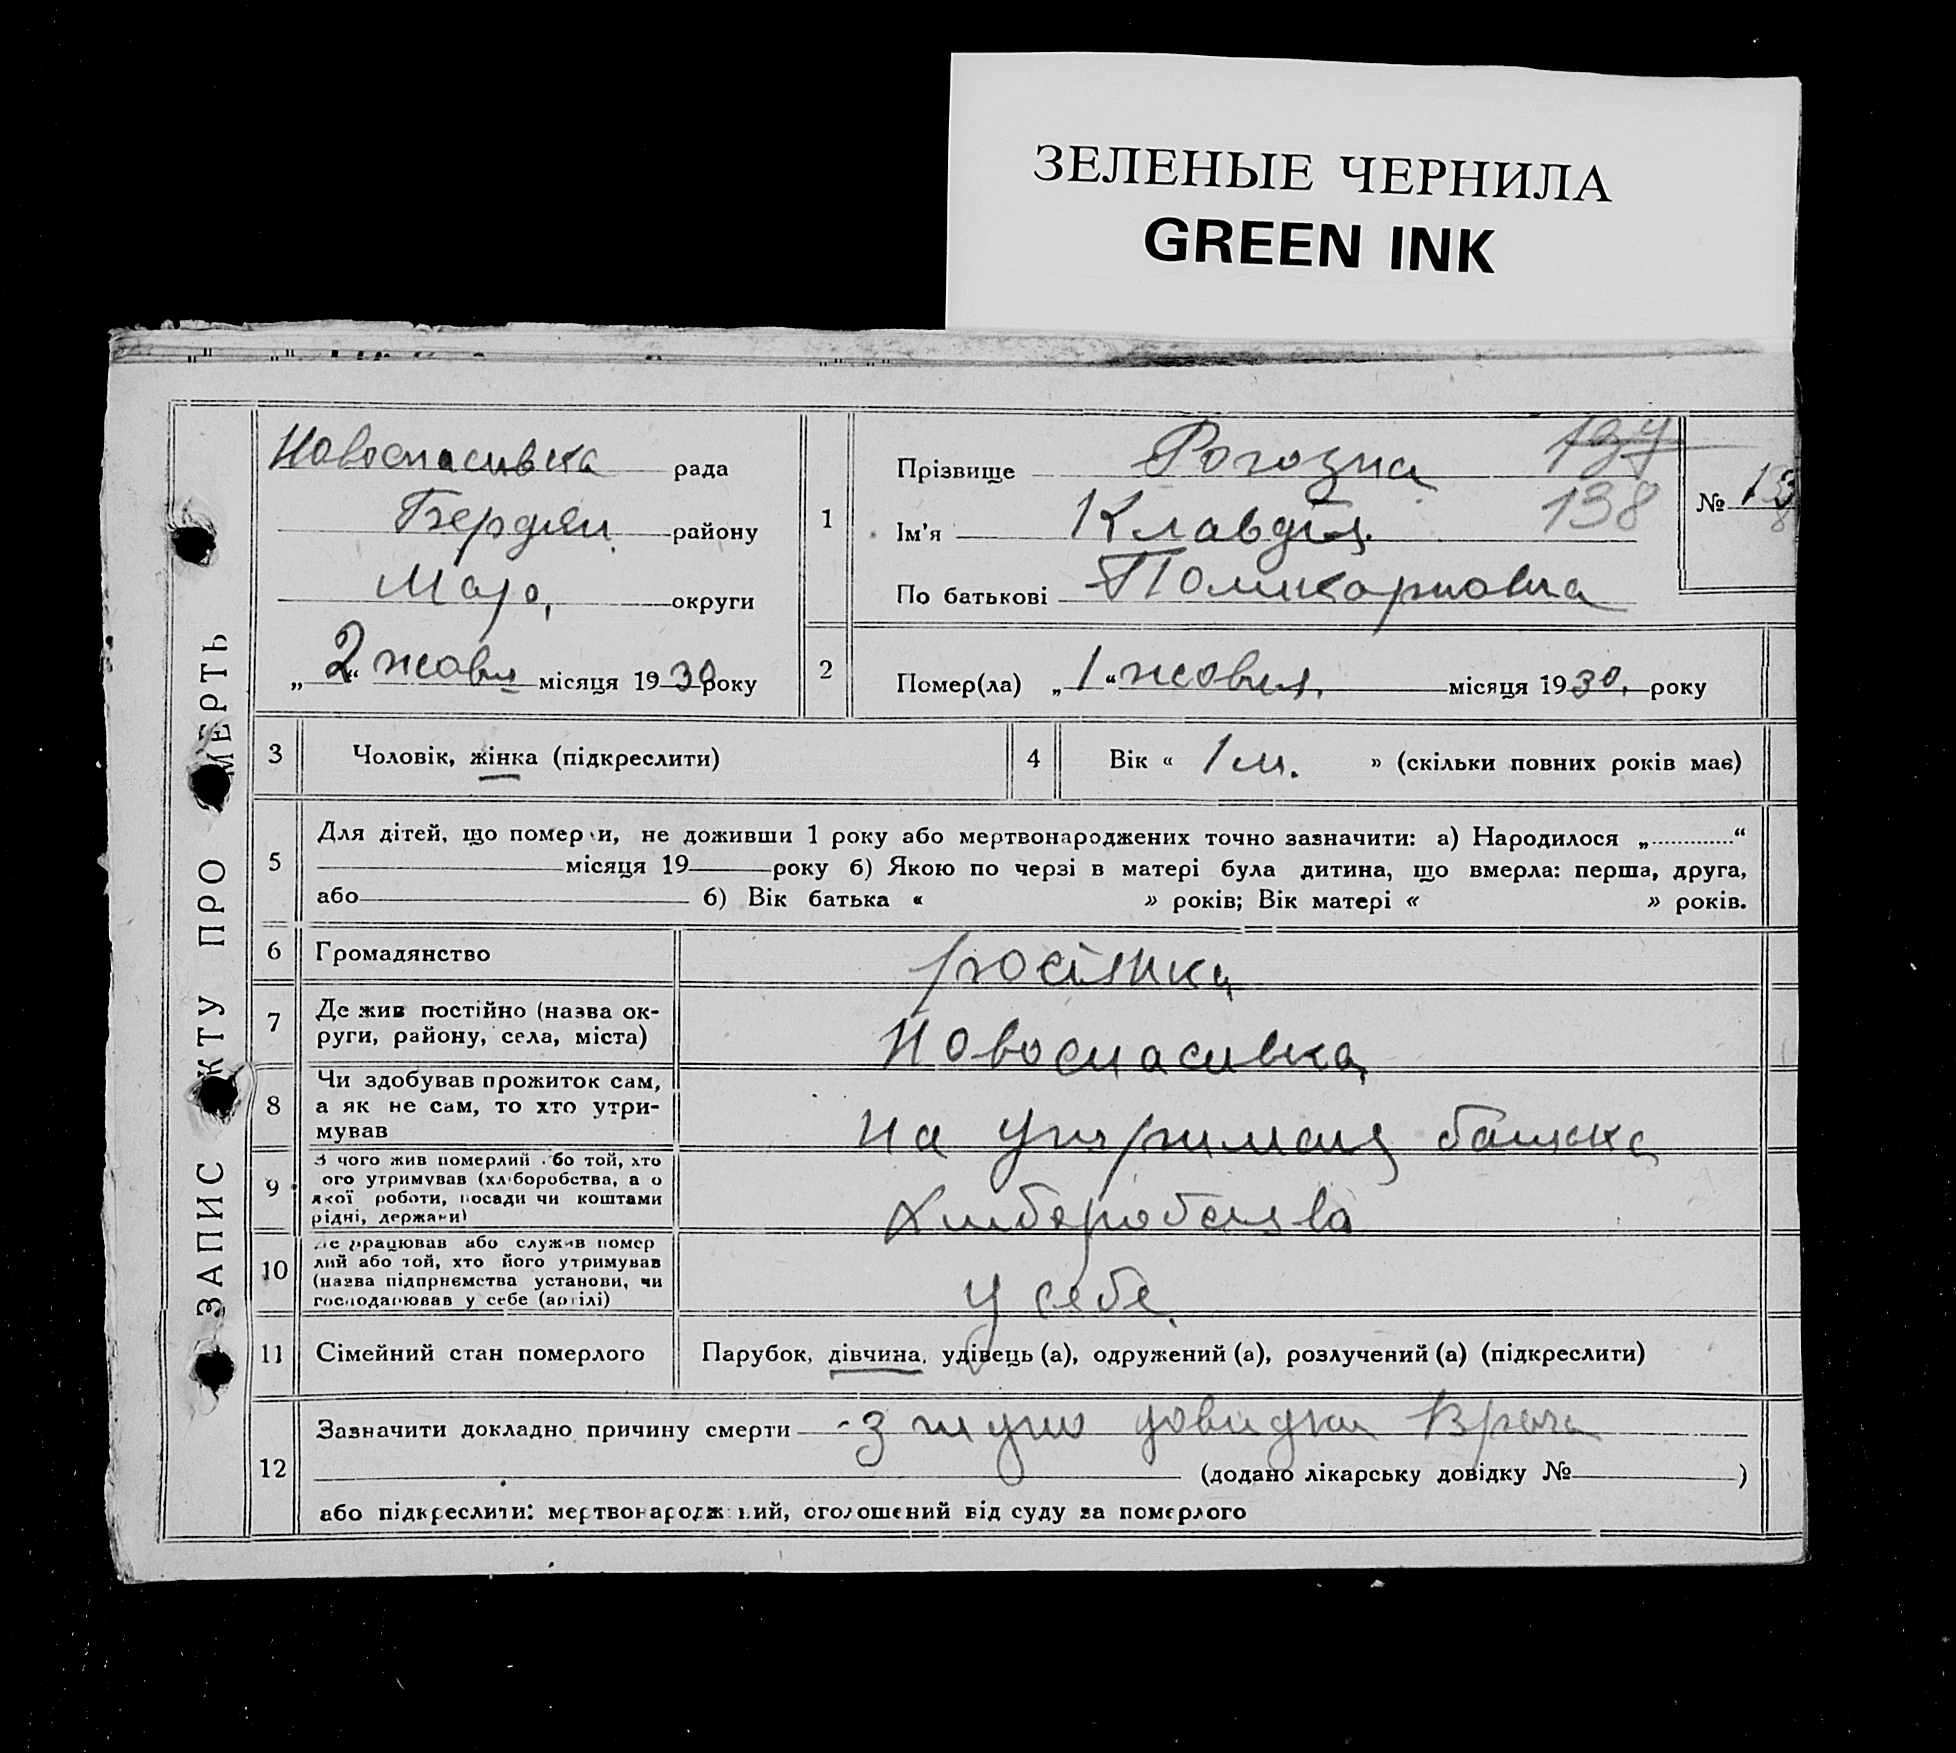 ЗЕЛЕНЫЕ ЧЕРНИЛА
GREEN INK
ЗАПИС АКТУ ПРО СМЕРТЬ
Новоспасивка рада
Бердян. району
Маро, округи
„2“ жовтя місяця 1930 року
1
Прізвище Рогозна 137
Ім'я Клавдія 138
По батькові Поликарповна
№ 138
2
Помер(ла) „1“ жовтя. місяця 1930. року
3
Чоловік, жінка (підкреслити)
4
Вік « 1 м. » (скільки повних років має)
5
Для дітей, що померли, не доживши 1 року або мертвонароджених точно зазначити: а) Народилося „ “
місяця 19 року б) Якою по черзі в матері була дитина, що вмерла: перша, друга,
або б) Вік батька « » років; Вік матері « » років.
6
Громадянство росіянка
7
Де жив постійно (назва ок-
руги, району, села, міста)
Новоспасивка
8
Чи здобував прожиток сам,
а як не сам, то хто утри-
мував
на утриманя батька
9
З чого жив померлий або той, хто
його утримував (хліборобства, а о
якої роботи, посади чи коштами
рідні, держави)
Хлиборобства
10
Де працював або служив помер
лий або той, хто його утримував
(назва підприємства установи, чи
господарював у себе (артілі)
у себе
11
Сімейний стан померлого
Парубок, дівчина, удівець (а), одружений (а), розлучений (а) (підкреслити)
12
Зазначити докладно причину смерти - з довидки Врача
(додано лікарську довідку № )
або підкреслити: мертвонароджений, оголошений від суду за померлого